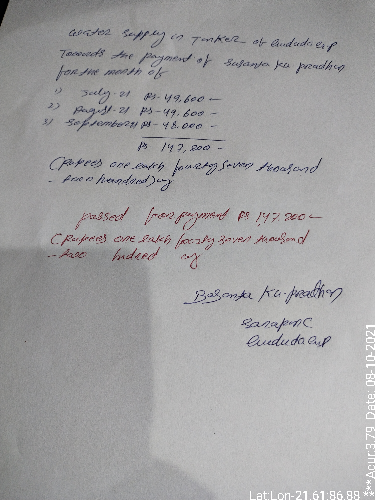 water supply in Tanker of Gududa GP
Towards the payment of Susanta Ku pradhan
for the month of
1) July-21 Rs-49,600 -
2) August-21 Rs-49,600 -
3) September Rs-48,000 -
Rs 147,200 -
(Rupees one lakh fourty seven thousand
two hundred)
passed for payment Rs 147,200 -
(Rupees one lakh fourty seven thousand
two
Basanta Ku-pradhan
Sarapanc
Gududa GP
Lat Lon-21.61:86.88
***Acur:3.79 Date: 08-10-2021